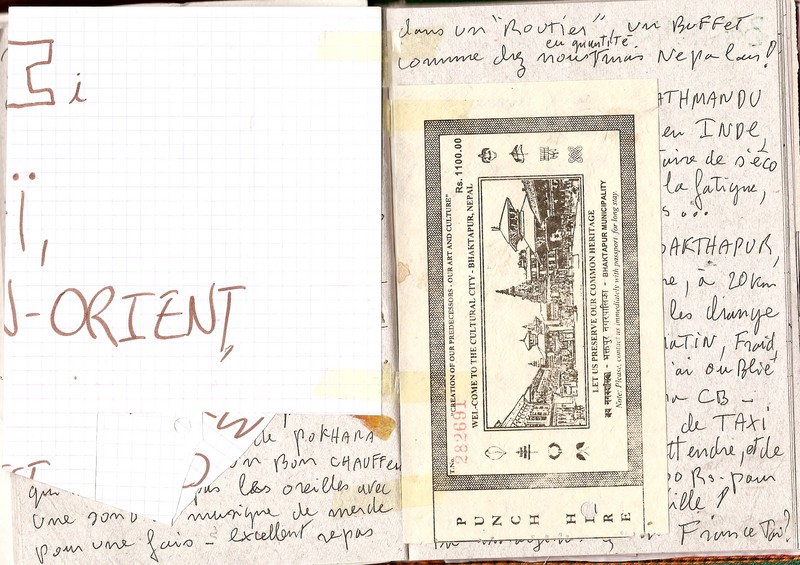 i
ï,
-ORIENT,
de POKHARA
un Bon CHAUFFeu
qui pas les oreilles avec
une sono musique de merde
pour une fois - excellent repas
dans un "Routier" un BUFFET
en quantité
comme chez nous mais Nepalais!
ATHMANDU
en INDE,
taire de s'éco
la fatigue,
s ...
AKTHAPUR,
re, à 20 km
les change
MATIN, Froid
ai oublié
CB -
de TAXI
ttendre, et de
00 Rs. pour
eille !
France Taxi?
"CREATION OF OUR PREDECESSORS - OUR ART AND CULTURE"
Rs. 1100.00
WELCOME TO THE CULTURAL CITY - BHAKTAPUR, NEPAL
T.No. 282691
LET US PRESERVE OUR COMMON HERITAGE
भक्तपुर नगरपालिका - BHAKTAPUR MUNICIPALITY
Note: Please, contact us immediately with passport for long stay.
PUNCH HERE